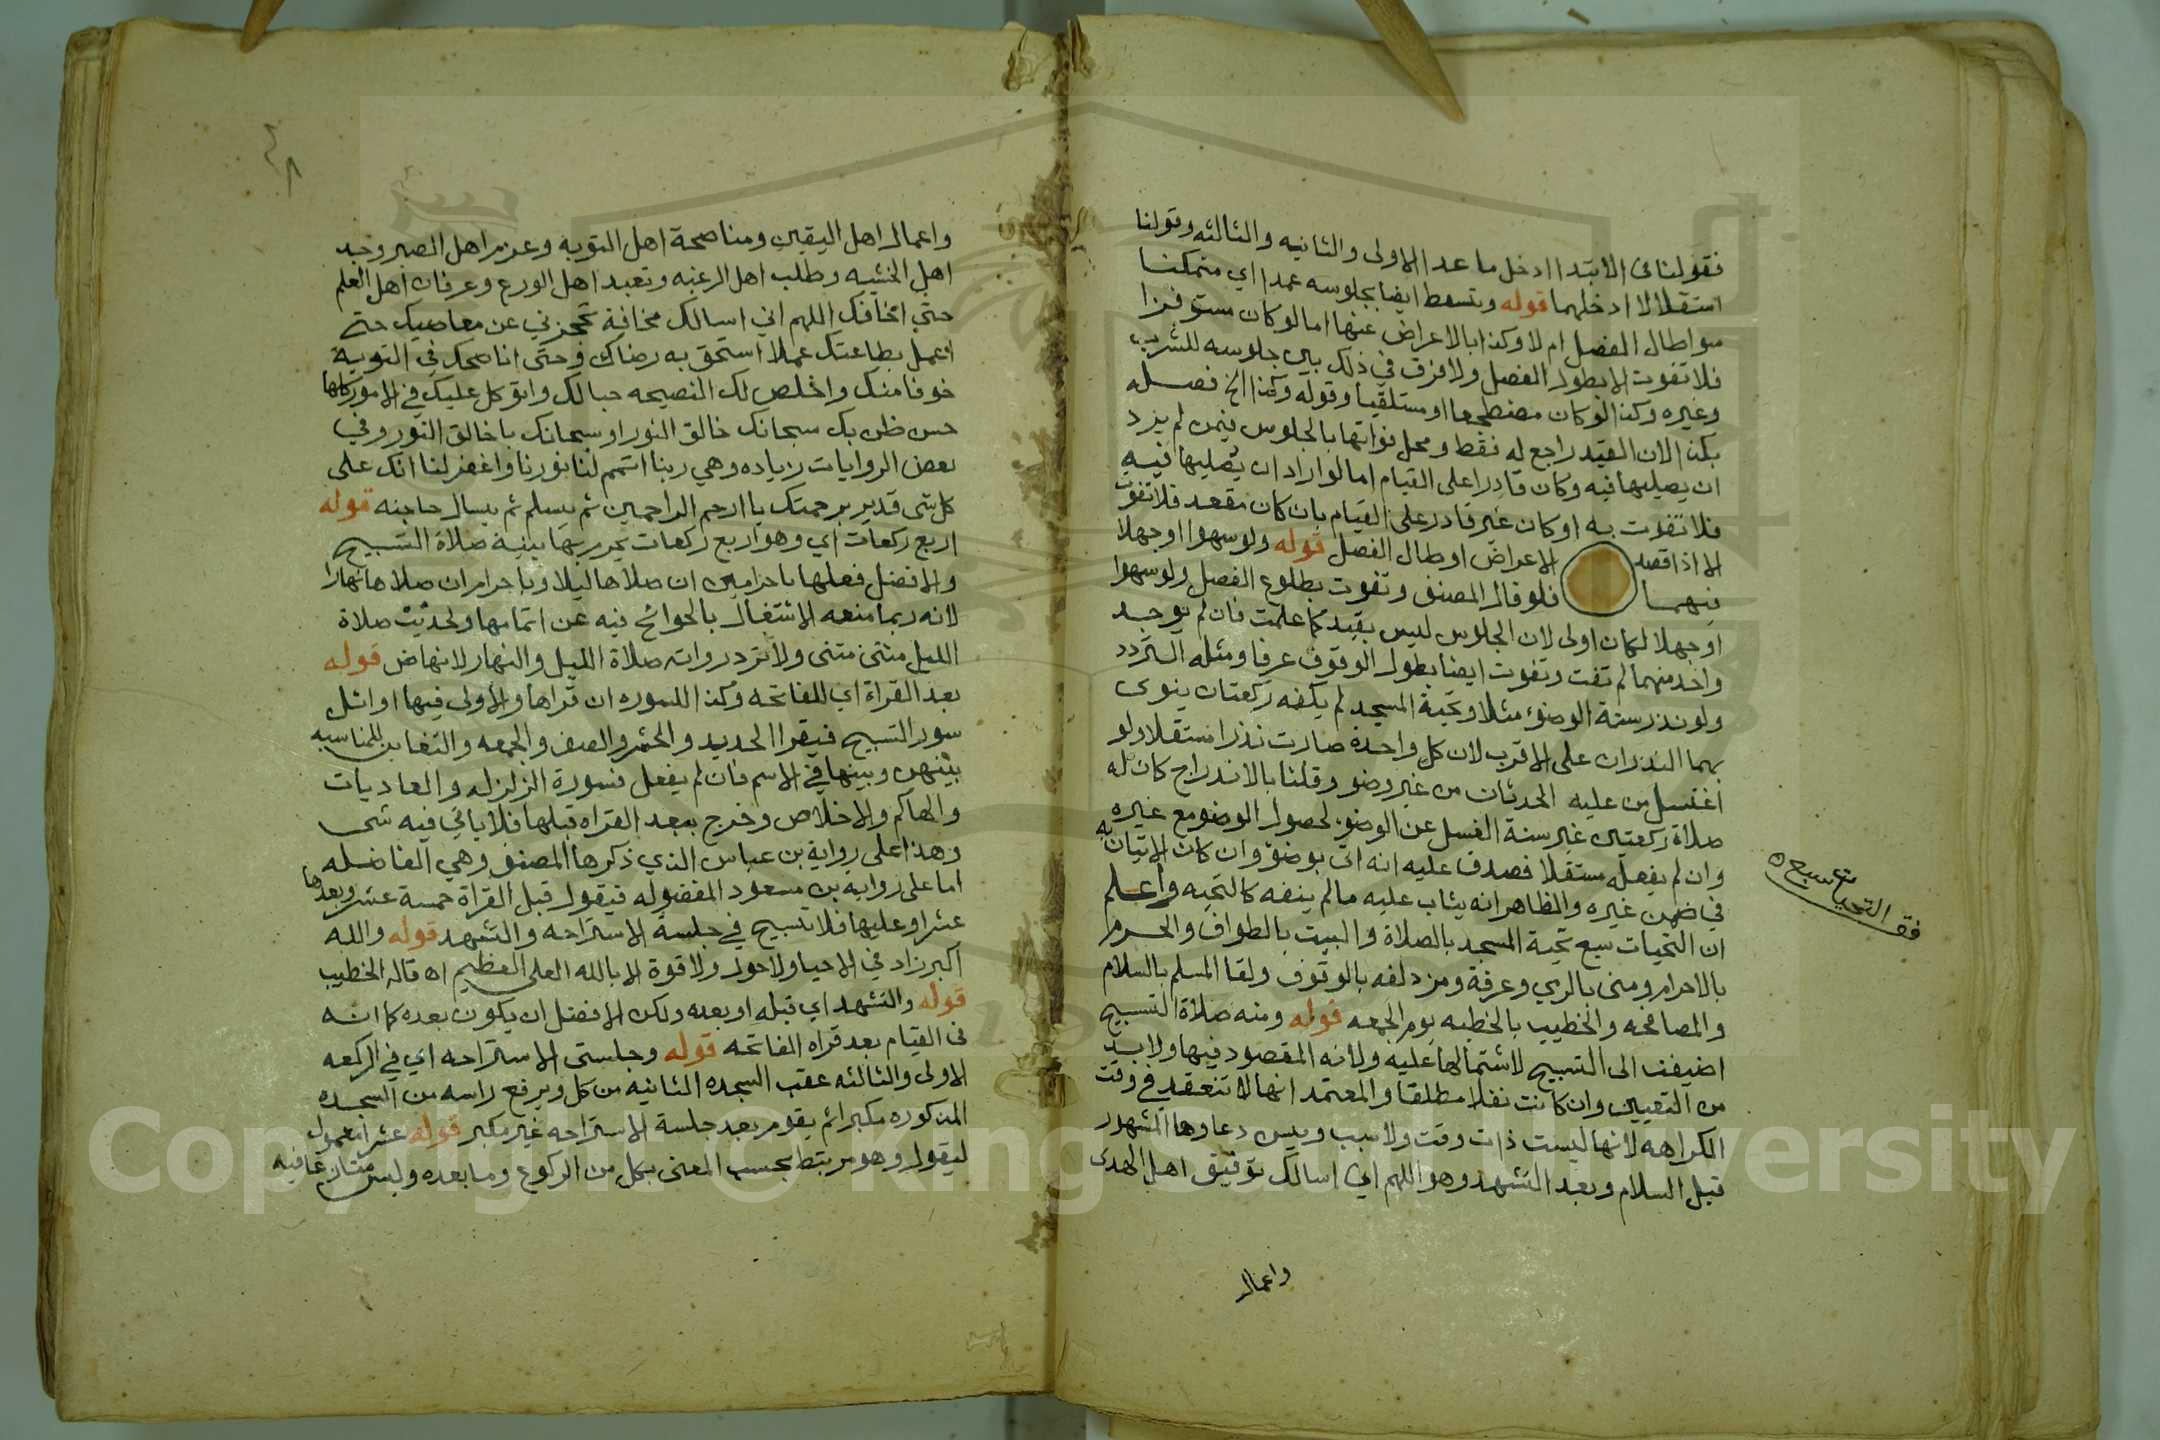 فقولنا في الابتدا ادخل ما عدا الاولى والثانيه والثالثه وقولنا
استقلالا ادخلهما قوله وتسقط ايضا بجلوسه عمدا اي متمكنا
سواطال الفصل ام لا وكذا بالاعراض عنها اما لو كان مستوفزا
فلا تفوت الا بطول الفصل ولا فرق في ذلك بين جلوسه للشرب
وغيره وكذا لو كان مضطجعا او مستلقيا وقوله وكذا الخ فصله
بكذا لان القيد راجع له فقط ومحل فواتها بالجلوس فيمن لم يرد
ان يصليها فيه وكان قادرا على القيام اما لو اراد ان يصليها فيه
فلا تفوت به او كان غير قادر على القيام بان كان مقعد فلا تفوت
الا اذا قصد الاعراض او طال الفصل قوله ولو سهوا او جهلا
فيهما فلو قال المصنف وتفوت بطلوع الفصل ولو سهوا
او جهلا لكان اولى لان الجلوس ليس بقيد كما علمت فان لم يوجد
واحد منهما لم تفت وتفوت ايضا بطول الوقوف عرفا ومثله التردد
ولو نذر سنة الوضوء مثلا وتحية المسجد لم يكفه ركعتان ينوى
بهما النذران على الاقرب لان كل واحدة صارت نذرا مستقلا ولو
اغتسل من عليه الحدثان من غير وضو وقلنا بالاندراج كان له
صلاة ركعتين غير سنة الغسل عن الوضوء لحصول الوضو مع غيره
وان لم يفعله مستقلا فصدق عليه انه اتى بوضوء وان كان الاتيان به
في ضمن غيره والظاهر انه يثاب عليه مالم ينفه كالتحيه واعلم
ان التحيات سبع تحية المسجد بالصلاة والبيت بالطواف والحرم
بالاحرام ومنى بالرمي وعرفة ومزدلفه بالوقوف ولقا المسلم بالسلام
والمصافحه والخطيب بالخطبه يوم الجمعه قوله ومنه صلاة التسبيح
اضيفت الى التسبيح لاشتمالها عليه ولانه المقصود فيها ولا بد
من التعيين وان كانت نفلا مطلقا والمعتمد انها لا تنعقد في وقت
الكراهه لانها ليست ذات وقت ولا سبب ويسن دعاوها المشهور
قبل السلام وبعد التشهد وهو اللهم اني اسالك توفيق اهل الهدى
واعمال
فقه التحيات سبع
واعمال اهل اليقين ومناصحة اهل التوبه وعزم اهل الصبر وجد
اهل الخشيه وطلب اهل الرغبه وتعبد اهل الورع وعرفان اهل العلم
حتى اخافك اللهم اني اسالك مخافة تحجزني عن معاصيك حتى
اعمل بطاعتك عملا استحق به رضاك وحتى اناصحك في التوبة
خوفا منك واخلص لك النصيحه حبا لك واتوكل عليك في الامور كلها
حسن ظن بك سبحانك خالق النور او سبحانك يا خالق النور وفي
بعض الروايات زياده وهي ربنا اتمم لنا نورنا واغفر لنا انك على
كل شى قدير برحمتك يا ارحم الراحمين ثم يسلم ثم يسال حاجته قوله
اربع ركعات اي وهو اربع ركعات يحرم بها بنية صلاة التسبيح
والافضل فعلها باحرامين ان صلاها ليلا وباحرام ان صلاها نهارا
لانه ربما منعه الاشتغال بالحوائج فيه عن اتمامها ولحديث صلاة
الليل مثنى مثنى ولا ترد رواية صلاة الليل والنهار لانهاض قوله
بعد القراة اي للفاتحه وكذا السوره ان قراها والاولى فيها اوائل
سور التسبيح فيقرا الحديد والحشر والصف والجمعه والتغابن للمناسبه
بينهن وبينها في الاسم فان لم يفعل فسورة الزلزله والعاديات
والهاكم والاخلاص وخرج ببعد القراه قبلها فلا ياتي فيه شى
وهذا على رواية بن عباس الذي ذكرها المصنف وهي الفاضله
اما على رواية بن مسعود المفضوله فيقول قبل القراة خمسة عشر وبعدها
عشرا وعليها فلا تسبيح في جلسة الاستراحه والتشهد قوله والله
اكبر زاد في الاحيا ولا حول ولا قوة الا بالله العلي العظيم اه قاله الخطيب
قوله والتشهد اي قبله او بعده ولكن الافضل ان يكون بعده كما انه
في القيام بعد قراه الفاتحه قوله وجلستى الاستراحه اي في الركعه
الاولى والثالثه عقب السجده الثانيه من كل ويرفع راسه من السجده
المذكوره مكبرا ثم يقوم بعد جلسة الاستراحه غير مكبر قوله عشرا معمول
ليقول وهو مرتبط بحسب المعنى بكل من الركوع وما بعده وليس متنازعا فيه
Copyright © King Saud University